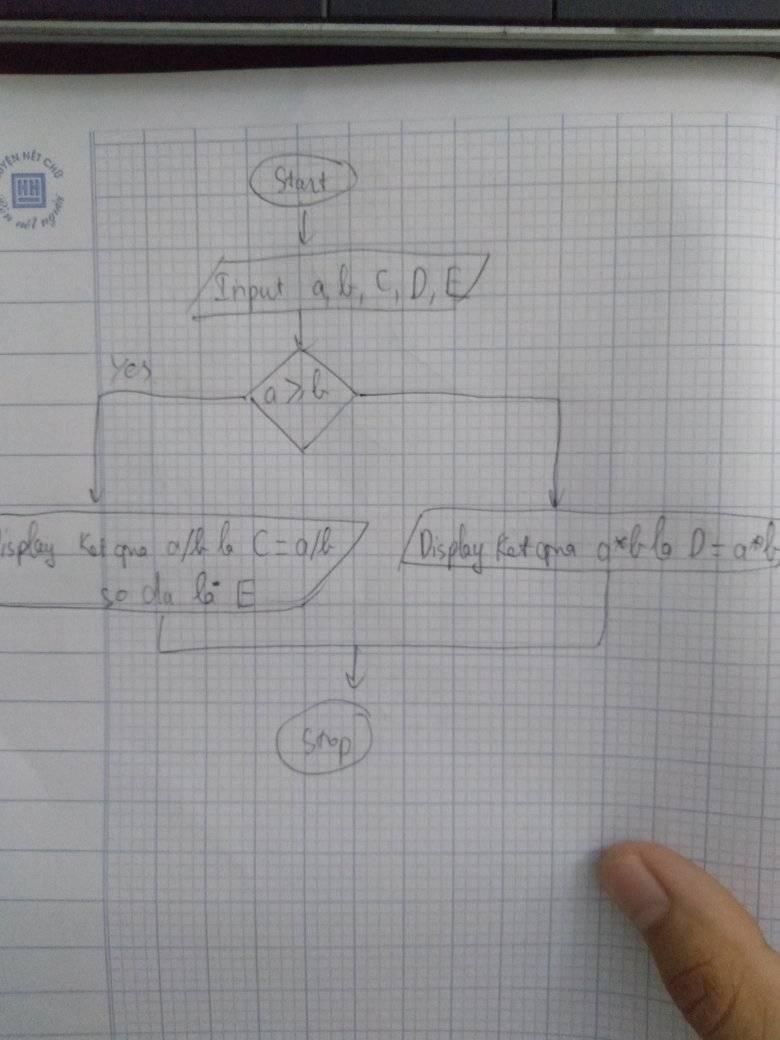 UYỆN NÉT CHỮ
HH
nết người
Start
Input a, b, C, D, E
Yes
a ≥ b
isplay Ket qua a/b la C = a/b
so du là E
Display Ket qua a*b la D = a*b
Stop